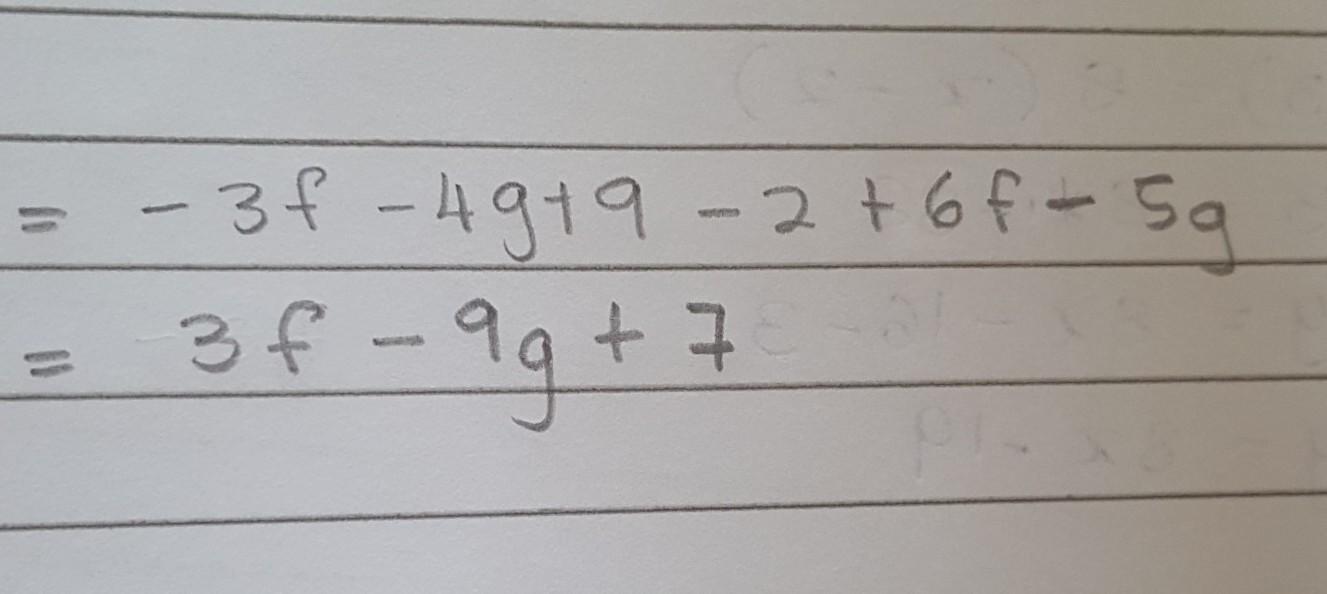 = - 3f - 4g+9 - 2 + 6f - 5g
= 3f - 9g + 7